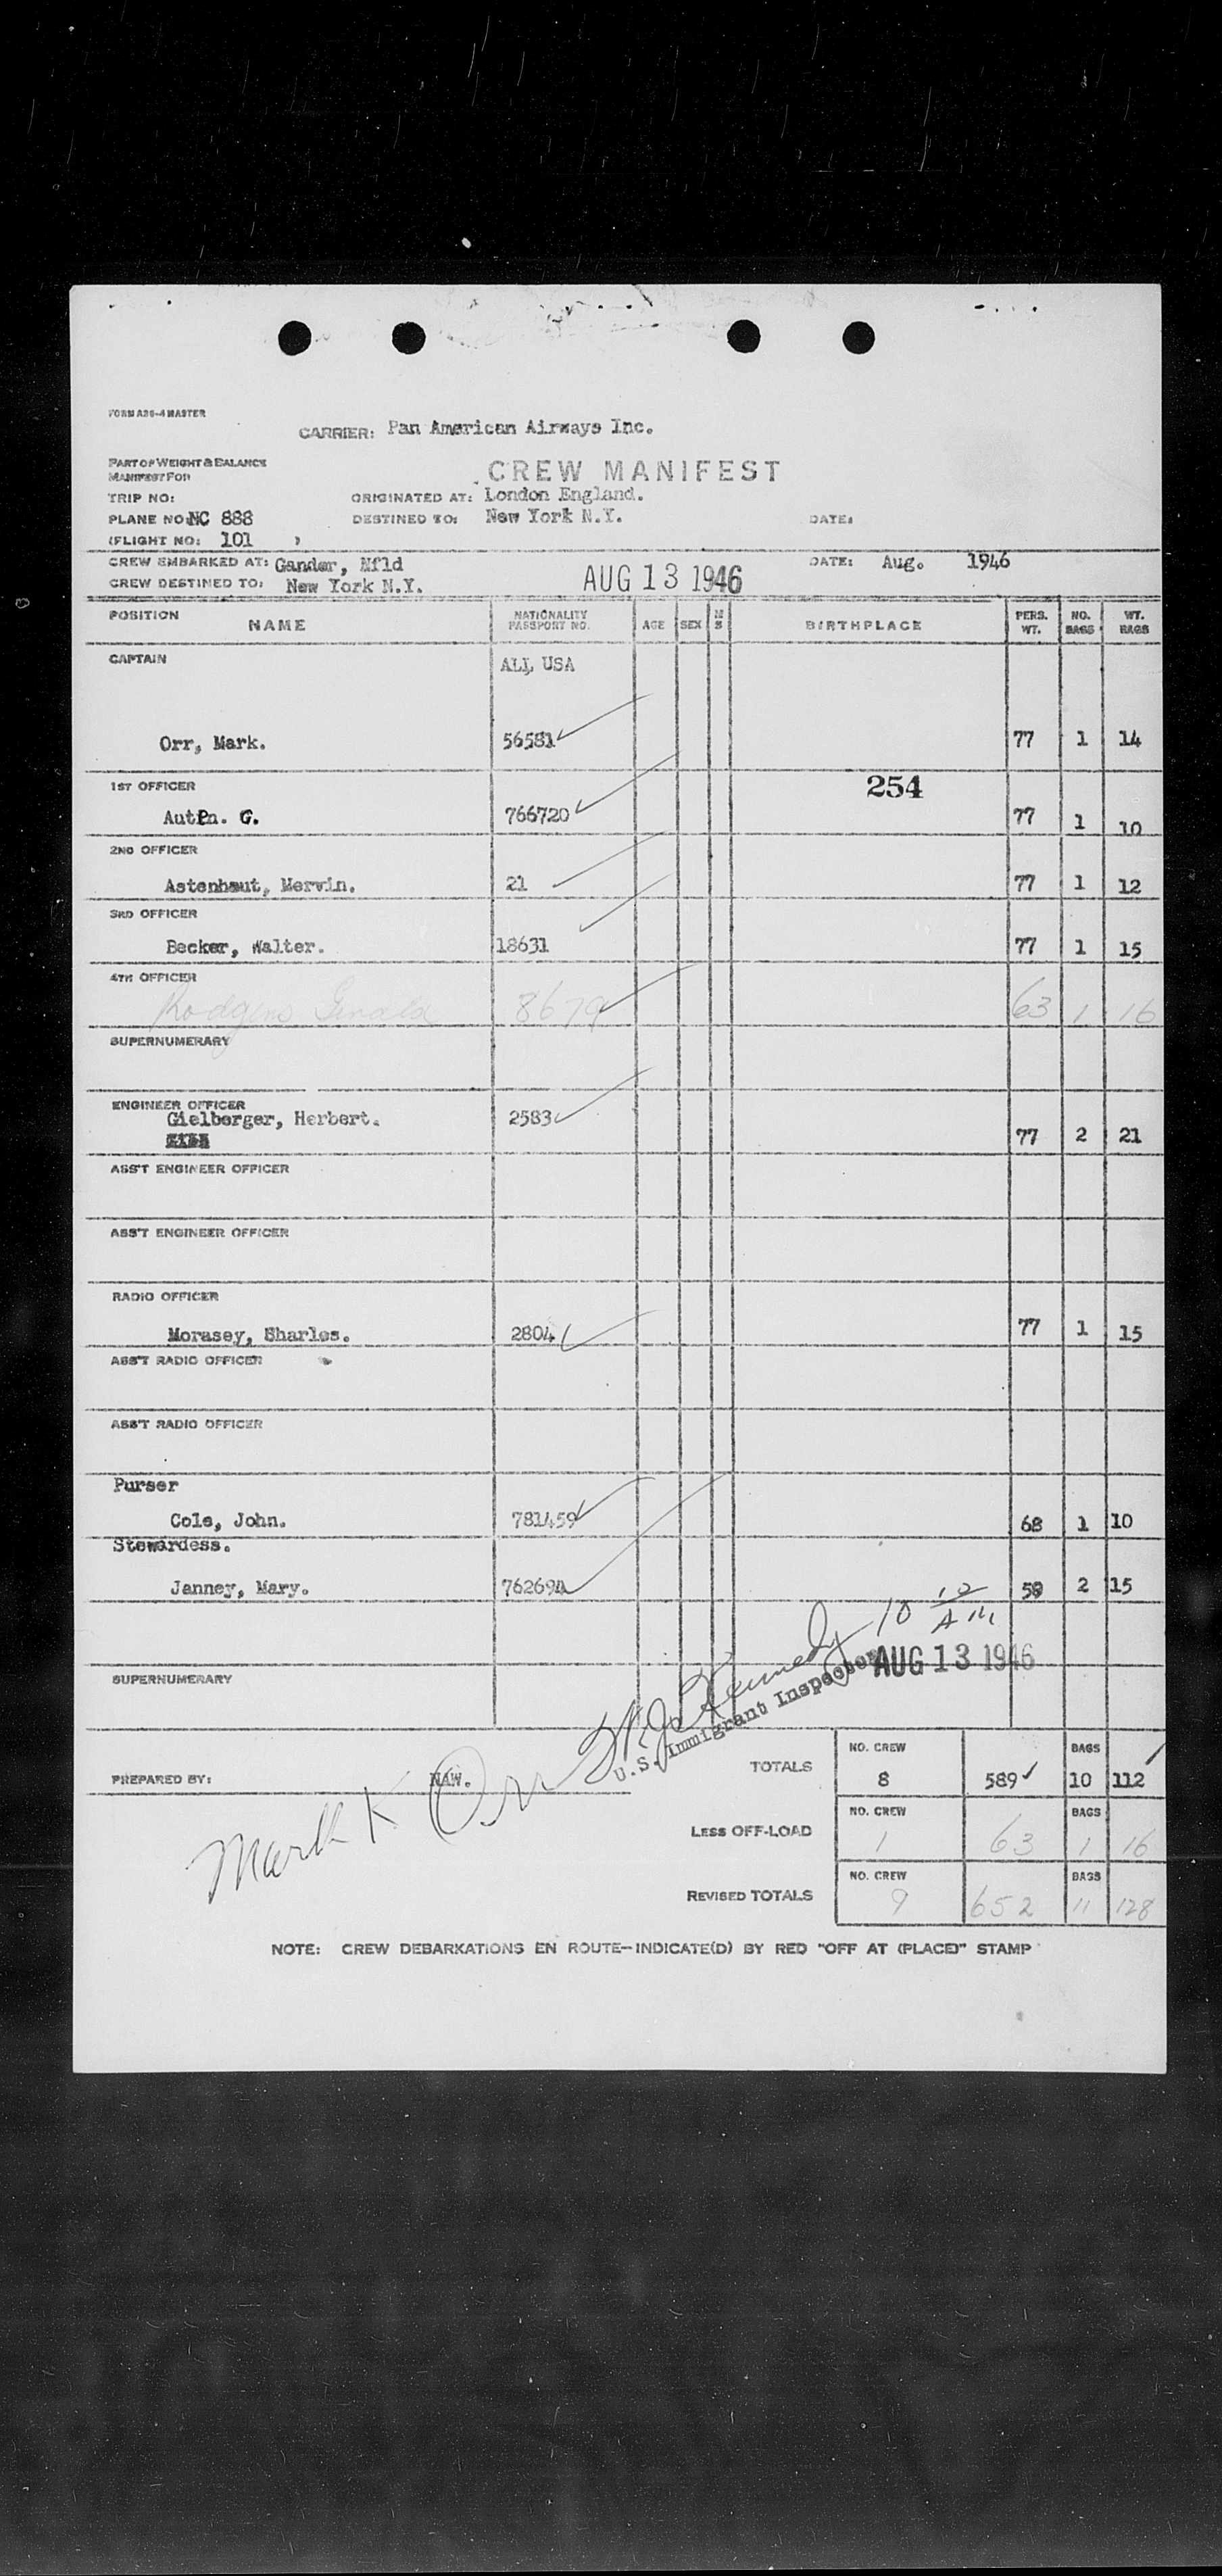 FORM A26-4 MASTER
CARRIER: Pan American Airways Inc.
PART OF WEIGHT & BALANCE
MANIFEST FOR
CREW MANIFEST
TRIP NO:
ORIGINATED AT: London England.
PLANE NO: NC 888
DESTINED TO: New York N.Y.
DATE:
(FLIGHT NO: 101 )
CREW EMBARKED AT: Gander, Nfld
DATE: Aug. 1946
CREW DESTINED TO: New York N.Y.
AUG 13 1946
POSITION NAME NATIONALITY PASSPORT NO. AGE SEX M S BIRTHPLACE PERS. WT. NO. BAGS WT. BAGS
CAPTAIN ALL USA
Orr, Mark. 56581 77 1 14
1ST OFFICER 254
Auten. G. 766720 77 1 10
2ND OFFICER
Astenhaut, Mervin. 21 77 1 12
3RD OFFICER
Becker, Walter. 18631 77 1 15
4TH OFFICER
Rodgers 8679 63 1 16
SUPERNUMERARY
ENGINEER OFFICER
Gielberger, Herbert. 2583 77 2 21
ASS'T ENGINEER OFFICER
ASS'T ENGINEER OFFICER
RADIO OFFICER
Morasey, Sharles. 2804 77 1 15
ASS'T RADIO OFFICER
ASS'T RADIO OFFICER
Purser
Cole, John. 781459 68 1 10
Stewardess.
Janney, Mary. 762694 59 2 15
10 10 AM
AUG 13 1946
SUPERNUMERARY
Kennedy
U.S. Immigrant Inspector
PREPARED BY: NAW.
TOTALS NO. CREW 8 589 BAGS 10 112
Mark K Orr
LESS OFF-LOAD NO. CREW 1 63 BAGS 1 16
REVISED TOTALS NO. CREW 9 652 BAGS 11 128
NOTE: CREW DEBARKATIONS EN ROUTE—INDICATE(D) BY RED "OFF AT (PLACE)" STAMP